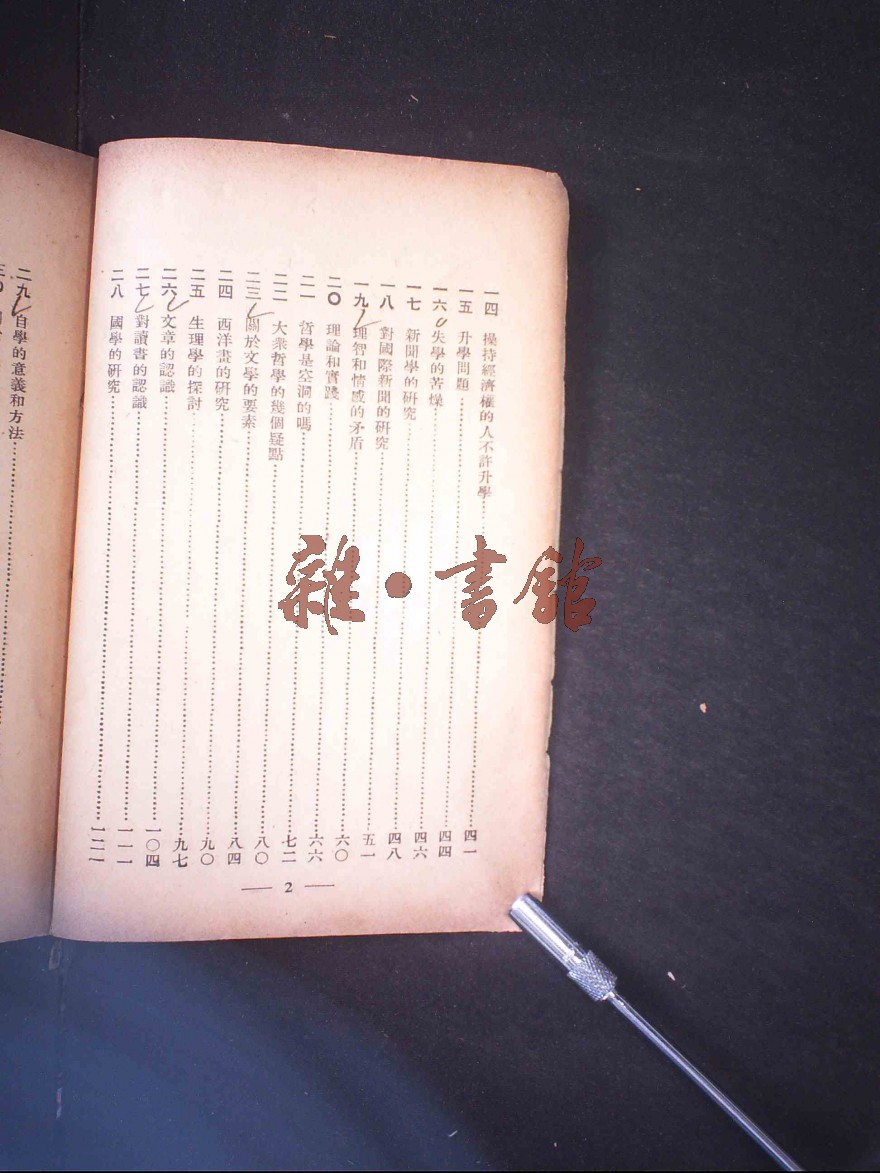 一四 操持經濟權的人不許升學……四一
一五 升學問題……四四
一六 失學的苦燥……四六
一七 新聞學的研究……四八
一八 對國際新聞的研究……五一
一九 理智和情感的矛盾……六〇
二〇 理論和實踐……六六
二一 哲學是空洞的嗎……七二
二二 大衆哲學的幾個疑點……八〇
二三 關於文學的要素……八四
二四 西洋畫的研究……九〇
二五 生理學的探討……九七
二六 文章的認識……一〇四
二七 對讀書的認識……一一一
二八 國學的研究……一二一
— 2 —
二九 自學的意義和方法……
雜•書館